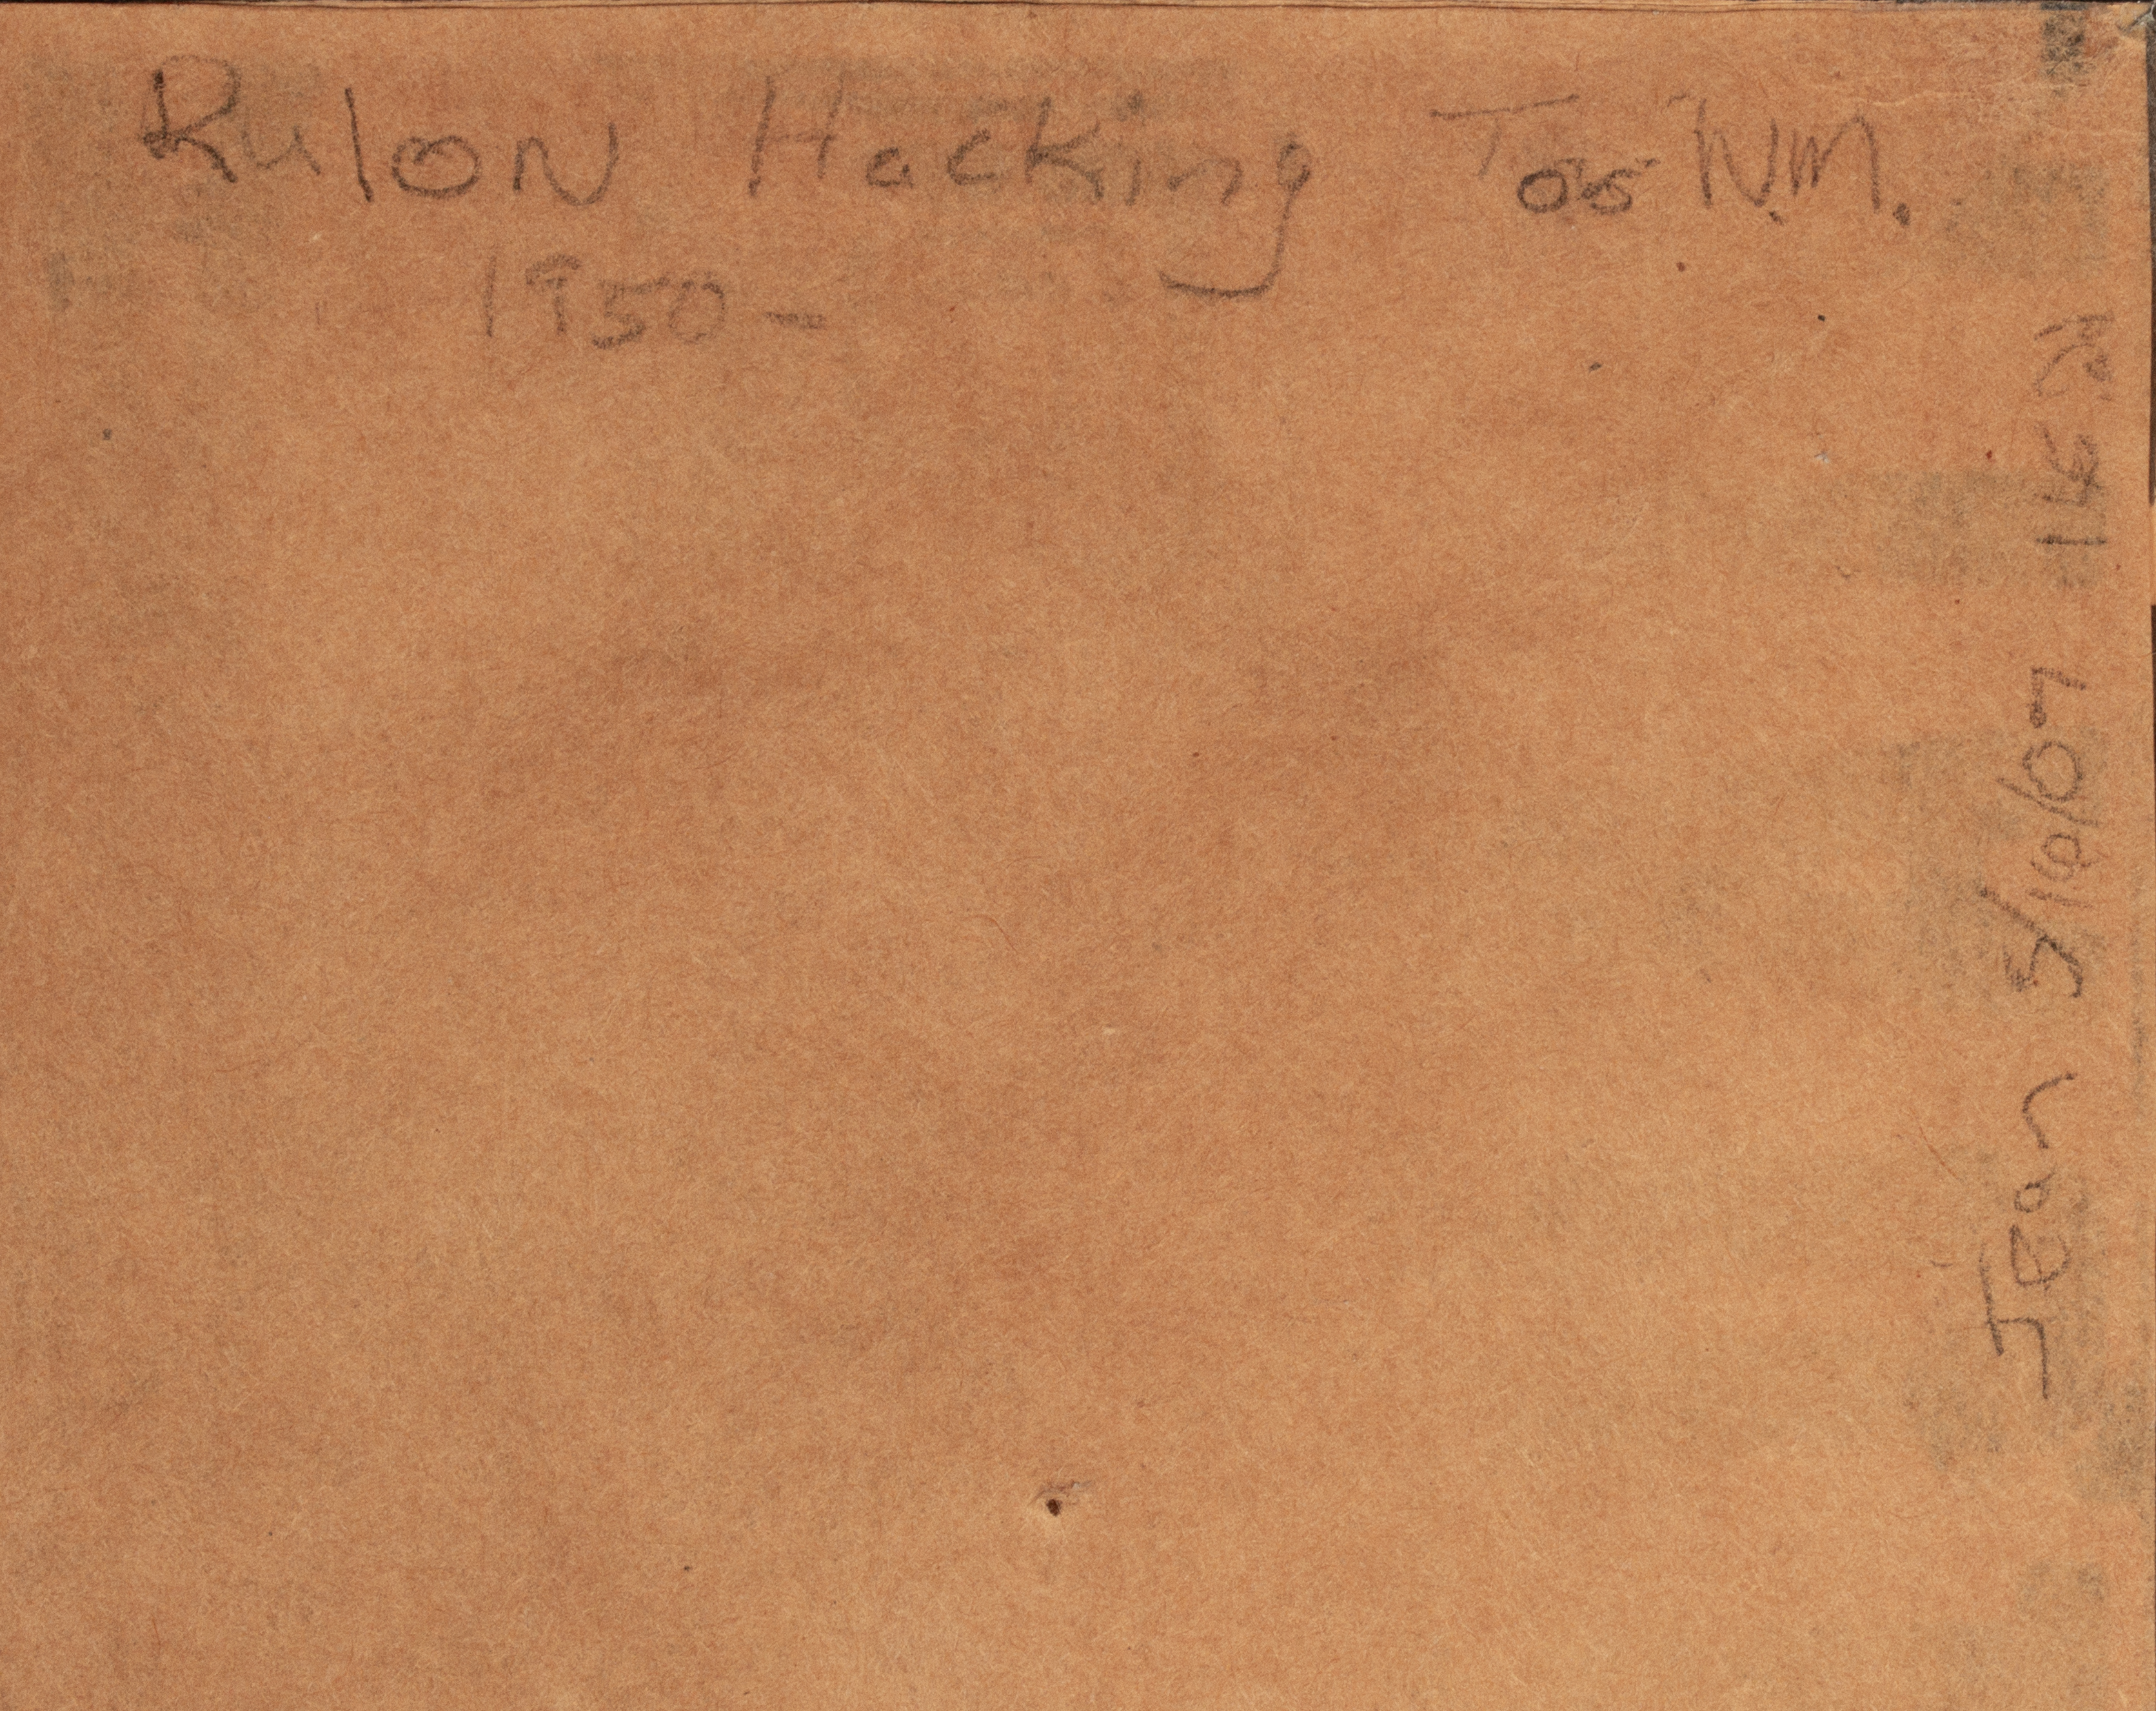 Rulon Hacking Taos N.M.
1950-
Jean 5/10/07